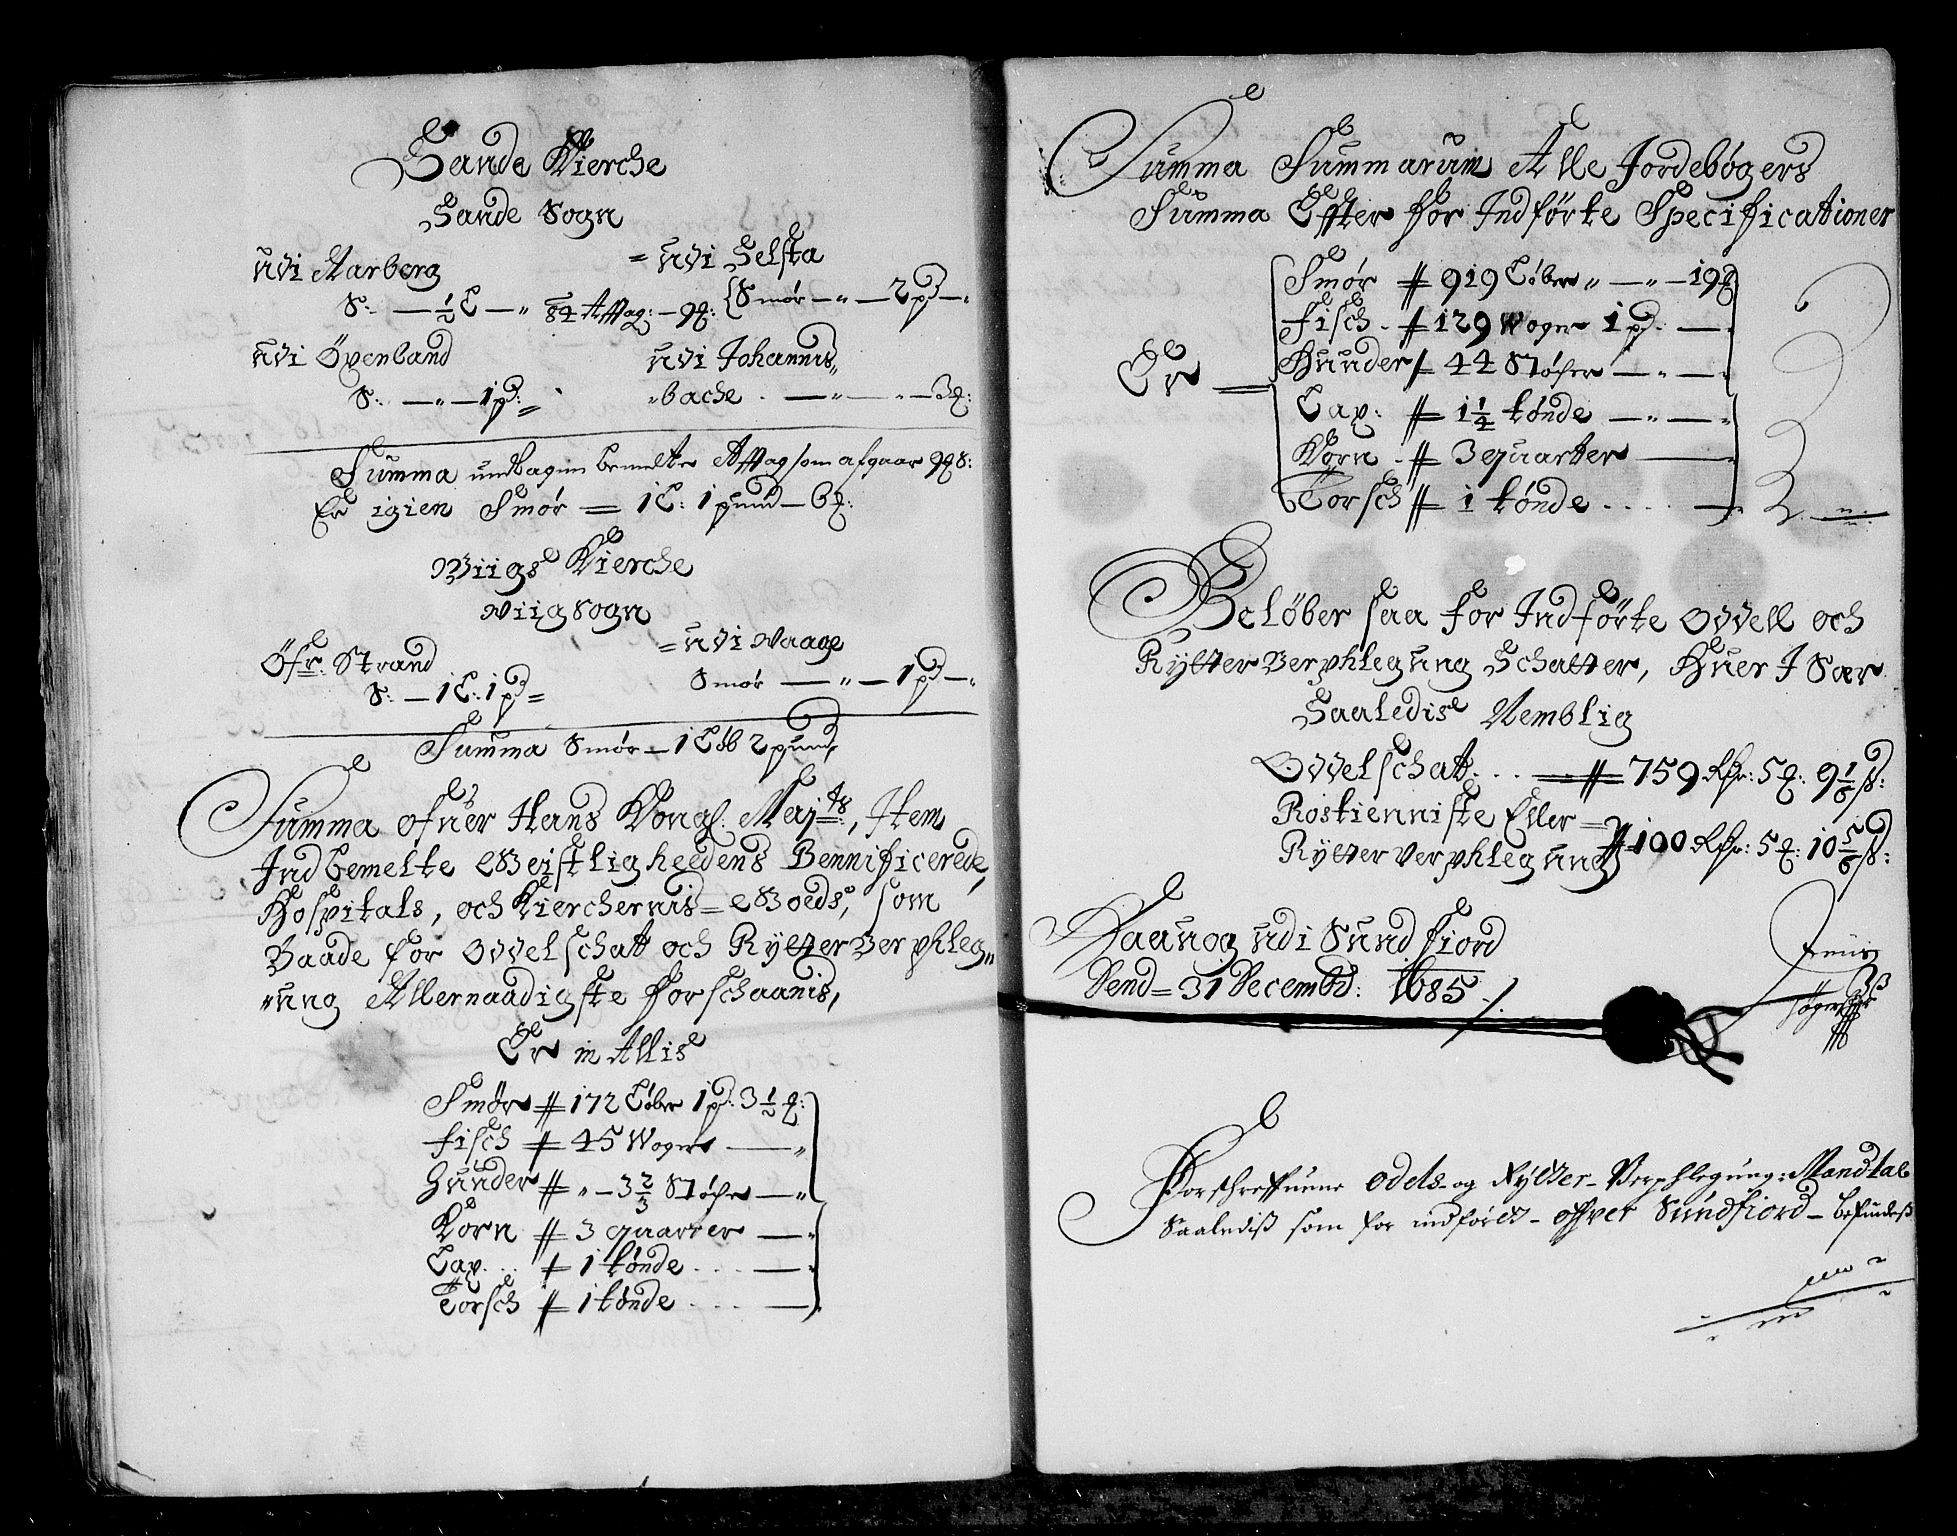 Sande Kierche
Sande Sogn
udi Aarberg
S: — ½ L — " 84 Afftag: — 9 :
= udi Selsta
Smör — " — 2 pd — "
udi Öxenland
S: — " — 1 pd: =
udi Johannis
"bache . — " — " — 3 :
Summa undtagen bemelte Afftag som afgaar 9 S:
Er igien Smör = 1 L: 1 pund — 6 :
Wiigs Kierche
Wiig Sogn
Öfr: Strand
S: — 1 L: 1 pd =
= udi Waage
Smör — " — 1 pd — "
Summa Smör — 1 Löb 2 pund,
Summa ofuer Hans Kongl: Maj:ts:, Item
Indbemelte Geistligheedens Bennificerede,
Hospitals, och Kierchernis = Goeds, som
Baade for Odelschatt och Rytter Verphleg,,
,,ung Allernaadigste Forschaanis,
Er in Allis
Smör # 172 Löber 1 pd: 3 ½ :
Fisch # 45 Woger — "
Huuder # " — 3 ⅔ Støcher — "
Korn # 3 quarter — "
Lax . . # 1 tønde . . . — "
Torsch # 1 tønde . . . . —
Summa Summarum Alle Jordebøgers
Summa Effter for Indførte Specificationer
Er =
Smör # 919 Löber " — " — 19
Fisch . # 129 Woger 1 pd. — "
Huuder # 44 Støcher — " — "
Lax: # 1¼ tønde — " — "
Korn . # 3 quarter — "
Torsch # 1 tønde . . . . —
Belöber saa for Indførte Odell och
Rytter Verphlegung Schatter, Huer I Sær
Saaledis Nemblig
Odelschatt . . . = # 759 Rdr: 5 : 9 ⅙ s:
Rostienniste Eller =
Rytter Verphlegung # 100 Rdr: 5 : 10 ⅚ s:
udi Sundfiord
Dend = 31 Decembr: 1685 .
Forschreffuene Odels- og Rytter-Verphlegung: Mandtal
Saalediss som for indført - offver Sundfiord - befindess